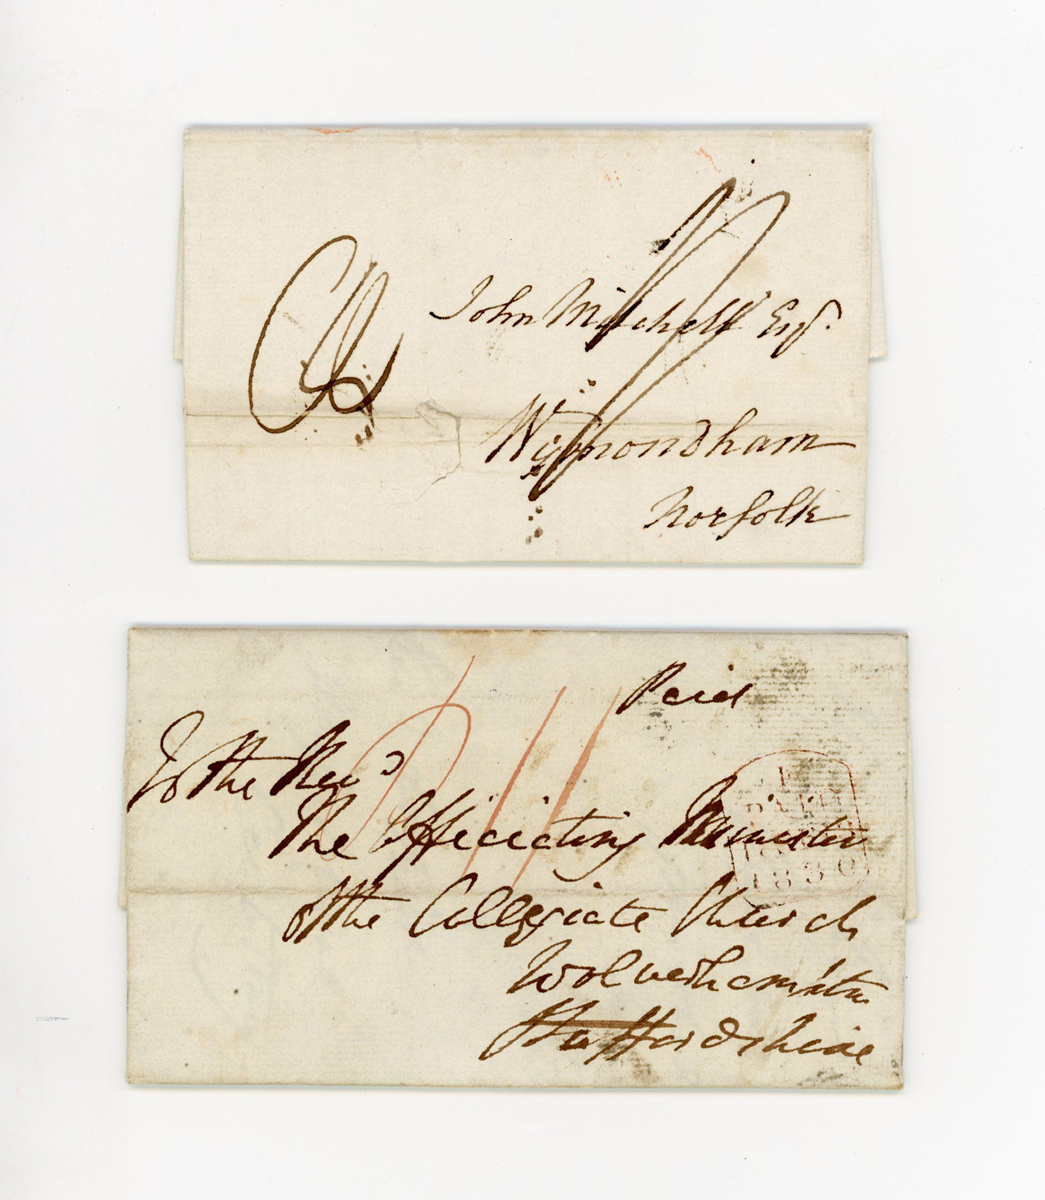 John Mitchell Esqr.
Wymondham
Norfolk
Paid
To the Revd
The Officiating Minister
of the Collegiate Church
Wolverhampton
Staffordshire
PAID
1830